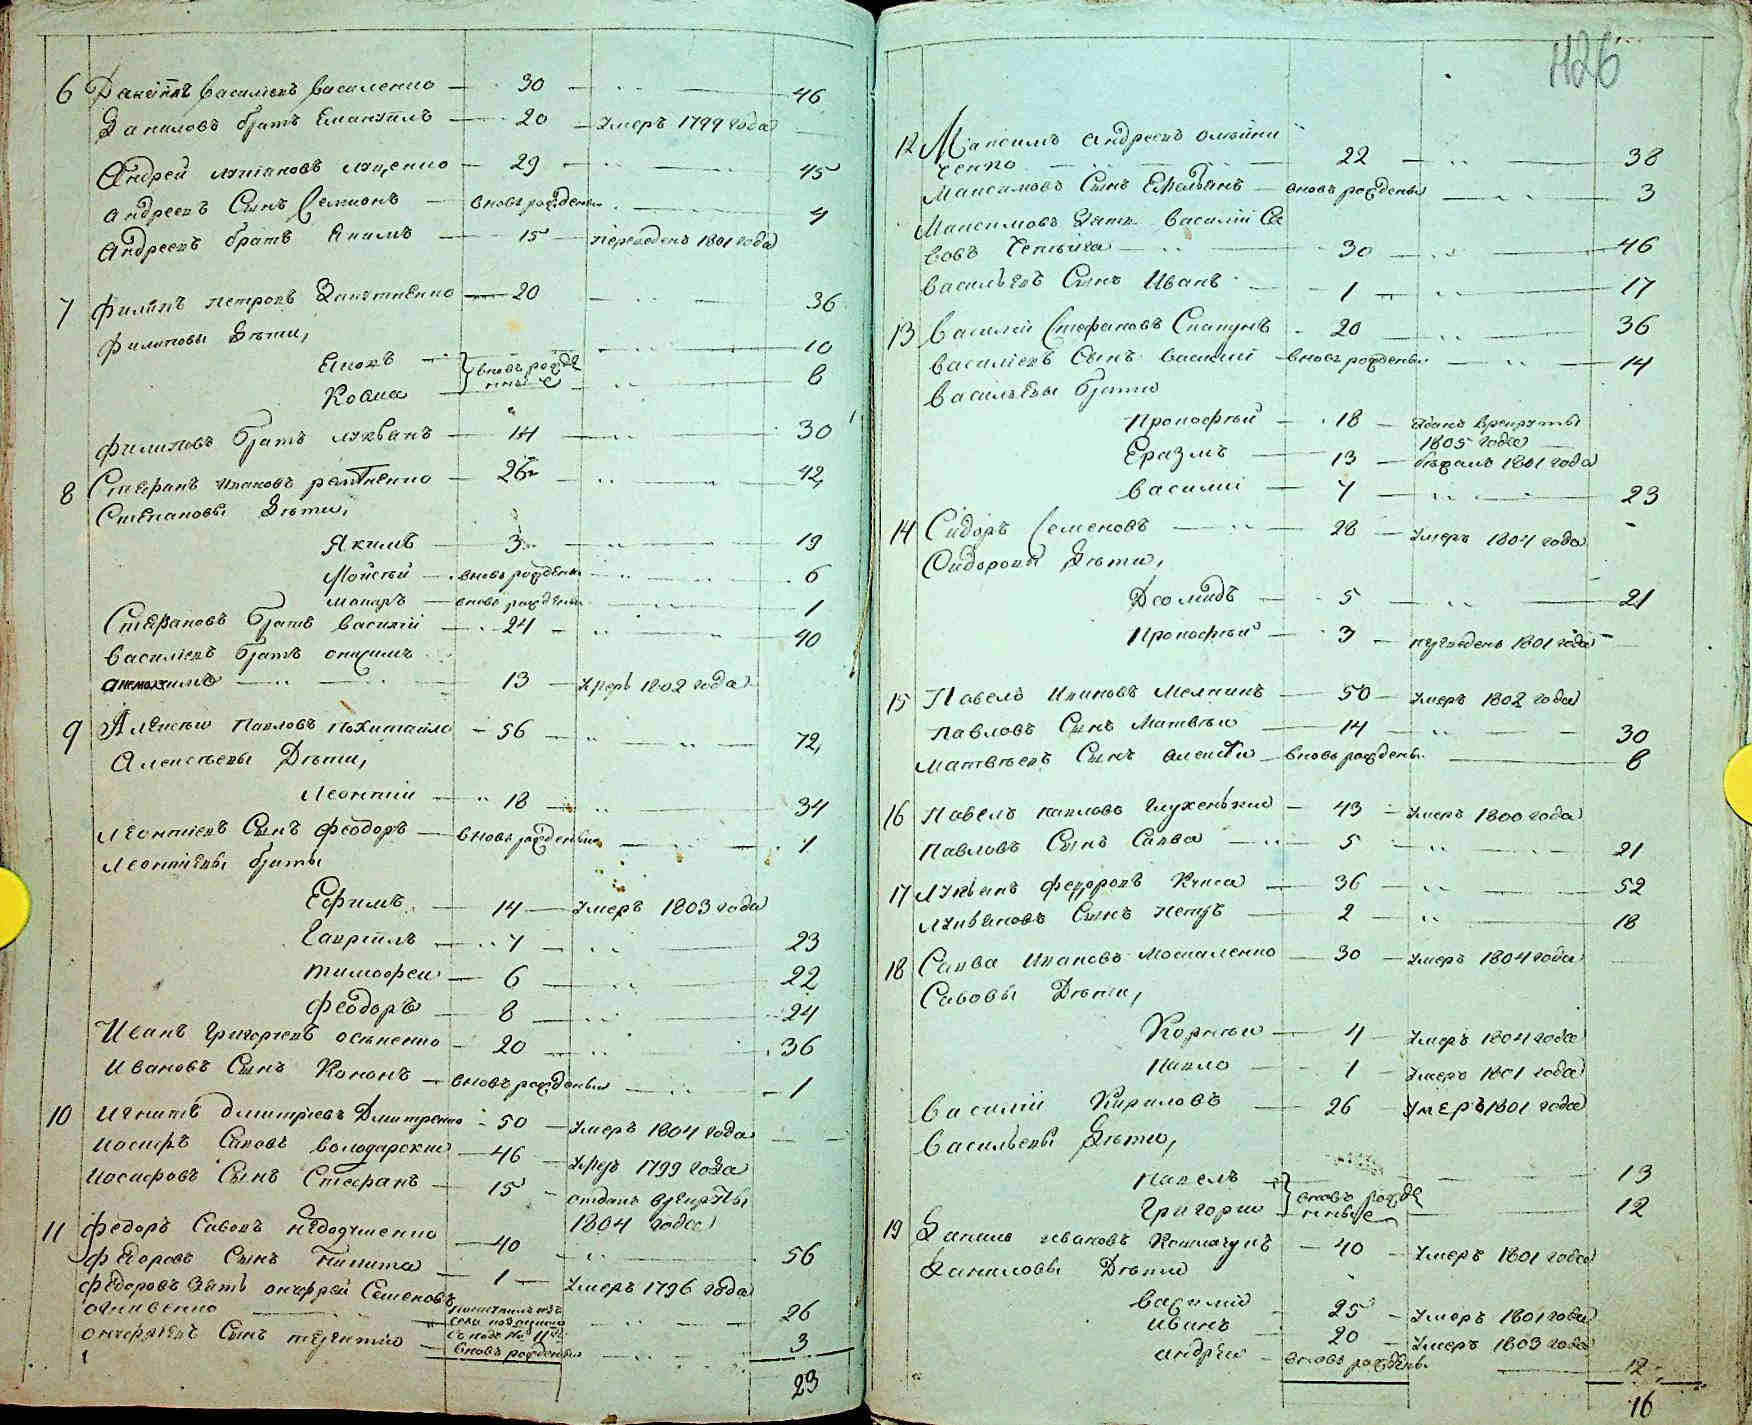 6 Данiилъ Василiевъ Василенко — 30 — 46
Даниловъ братъ Емануилъ — 20 — умеръ 1799 года
Андрей Лукiановъ Луценко — 29 — 45
Андреевъ Сынъ Семионъ — вновь рожденъ — 4
Андреевъ братъ Якимъ — 15 — переведенъ 1801 года
7 Филипъ Петровъ — 20 — 36
Филиповы Дѣти,
Яковъ — 10
Козма — вновь рожденные — 8
Филиповъ братъ Лукьянъ — 14 — 30
8 Стефанъ Ивановъ — 26 — 42
Степановы Дѣти,
Якимъ — 3 — 19
Мойсѣй — вновь рожденъ — 6
Макаръ — вновь рожденъ — 1
Стефановъ братъ Василiй — 24 — 40
Василiевъ братъ Онисимъ
— 13 — умеръ 1802 года
9 Алексѣй Павловъ — 56 — 72
Алексѣевы Дѣти,
Леонтiй — 18 — 34
Леонтiевъ Сынъ Феодоръ — вновь рожденъ — 1
Леонтiевы браты
Ефимъ — 14 — умеръ 1803 года
Гаврiилъ — 7 — 23
Тимофей — 6 — 22
Феодоръ — 8 — 24
Иванъ Григорiевъ — 20 — 36
Ивановъ Сынъ Кононъ — вновь рожденъ — 1
10 Игнатъ Дмитрiевъ Дмитренко — 50 — умеръ 1804 года
Иосифъ Савовъ Володарский — 46 — умеръ 1799 года
Иосифовъ Сынъ Стефанъ — 15 — отданъ врекруты
1804 года
11 Федоръ Савовъ — 40 — 56
Федоровъ Сынъ Никита — 1 — умеръ 1796 года
Федоровъ Зять Онуфрей Семеновъ
— 26
Онуфрiевъ Сынъ Терентий — вновь рожденъ — 3
23
426
12 Максимъ Андреевъ Олѣйни
ченко — 22 — 38
Максимовъ Сынъ Емельянъ — вновь рожденъ — 3
Максимовъ Зять Василiй Са
вовъ — 30 — 46
Васильевъ Сынъ Иванъ — 1 — 17
13 Василiй Стефановъ — 20 — 36
Василiевъ Сынъ Василiй — вновь рожденъ — 14
Васильевы браты
Прокофѣй — 18 — отданъ врекруты
1805 года
Еразмъ — 13 — бѣжалъ 1801 года
Василий — 7 — 23
14 Сидоръ Семеновъ — 28 — умеръ 1804 года
Сидоровы Дѣти,
Дiомидъ — 5 — 21
Прокофѣй — 3 — переведенъ 1801 года
15 Павелъ Ивановъ Мелникъ — 50 — умеръ 1802 года
Павловъ Сынъ Матвѣй — 14 — 30
Матвѣевъ Сынъ Алексѣй — вновь рожденъ — 8
16 Павелъ Павловъ Глухенький — 43 — умеръ 1800 года
Павловъ Сынъ Савва — 5 — 21
17 Лукьянъ Федоровъ — 36 — 52
Лукьяновъ Сынъ Петръ — 2 — 18
18 Савва Ивановъ Москаленко — 30 — умеръ 1804 года
Савовы Дѣти,
Корнѣй — 4 — умеръ 1804 года
Павло — 1 — умеръ 1801 года
Василий Кириловъ — 26 — умеръ 1801 года
Васильевы Дѣти,
Павелъ — 13
Григорий — вновь рожденные — 12
19 Данило Ивановъ — 40 — умеръ 1801 года
Даниловы Дѣти
Василий — 25 — умеръ 1801 года
Иванъ — 20 — умеръ 1803 года
Андрѣй — вновь рожденъ — 12
16